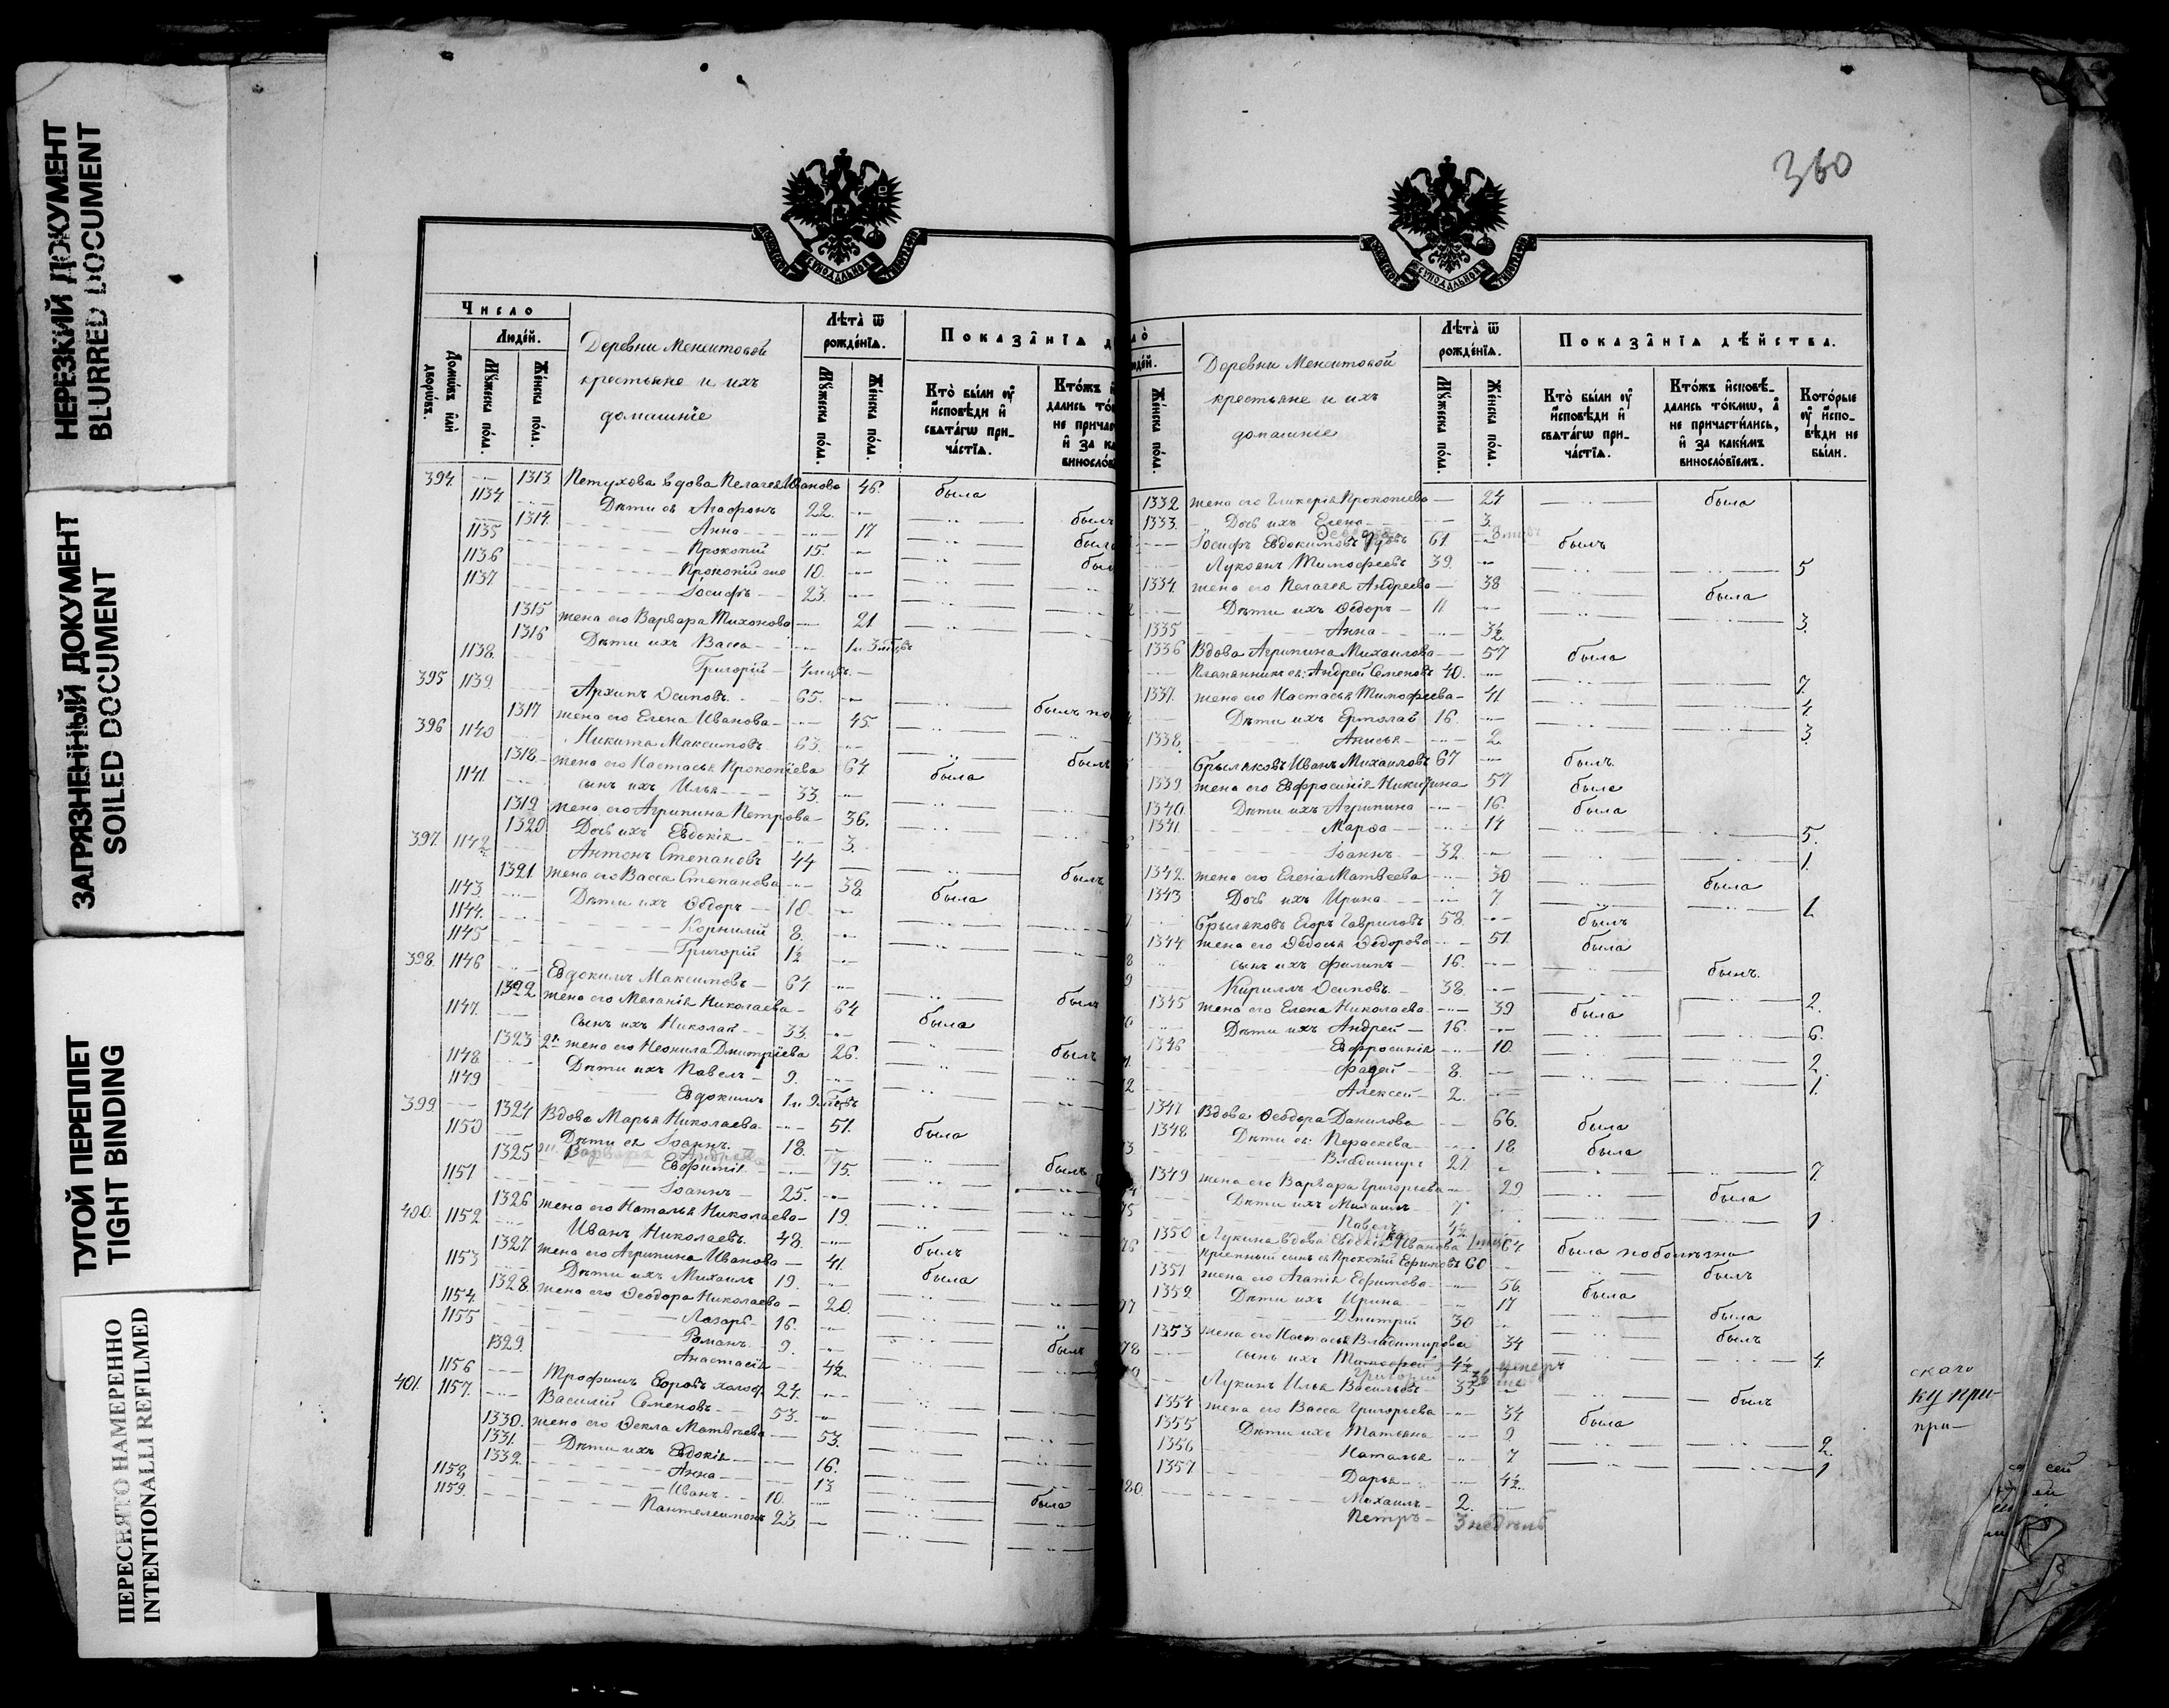 НЕРЕЗКИЙ ДОКУМЕНТ
BLURRED DOCUMENT
ЗАГРЯЗНЕННЫЙ ДОКУМЕНТ
SOILED DOCUMENT
ТУГОЙ ПЕРЕПЛЕТ
TIGHT BINDING
ПЕРЕСНЯТО НАМЕРЕННО
INTENTIONALLI REFILMED
Число
Людей.
Домѡвъ или дворѡвъ.
Мужеска пола.
Женска пола.
Деревни Менситовой
крестьяне и ихъ
домашніе
Лѣта ѿ
рожденїѧ.
Мужеска пола.
Женска пола.
Показанїѧ д
Кто были оу
исповѣди и
свѧтагѡ при-
частїѧ.
394 1313 Петухова вдова Пелагея Иванова 46. была
1134 Дѣти ея Агафонъ 22. былъ
1314. Анна 17 была
1135 Прокопій 15.
1136 Прокопій 10.
1137 Іосифъ 23.
1315 жена его Варвара Тихонова 21
1316 Дѣти ихъ Васса
1138. Григорій
395 1139 Архипъ Осиповъ 65.
1317 жена его Елена Иванова 45.
396 1140 Никита Максимовъ 63.
1318. жена его Настасья Прокопіева 64 была
1141 сынъ ихъ Илья 33.
1319 жена его Агрипина Петрова 36.
1320 Дочь ихъ Евдокія 3.
397. 1142 Антонъ Степановъ 44
1321 жена его Васса Степанова 38. была
1143 Дѣти ихъ Ѳедоръ 10.
1144. Корнилий 8.
1145 Григорій 1½
398. 1146 Евдокимъ Максимовъ 64
1322 жена его Меланія Николаева 64 была
1147. Сынъ ихъ Николай 33.
1323 2я жена его Неонила Дмитріева 26.
1148. Дѣти ихъ Павелъ 9.
1149 Евдокимъ
399. 1324 Вдова Марья Николаева 51. была
1150 Дѣти ея Іоаннъ 18.
1325 Евфимія 15.
1151 Іоаннъ 25.
1326 жена его Наталья Николаева 19.
400. 1152 Иванъ Николаевъ 48. былъ
1327 жена его Агрипина Иванова 41. была
1153 Дѣти ихъ Михаилъ 19.
1328. жена его Ѳеодора Николаева 20.
1154. Лазарь 16.
1155 Романъ 9.
1329. Анастасія 4½
1156 Трофимъ 24.
401. 1157. Василій Семеновъ 53.
1330. жена его Ѳекла Матвѣева 53.
1331. Дѣти ихъ Евдокія 16.
1332. Анна 13
1158. Иванъ 10.
1159. Пантелеимонъ 23
360
Женска пола.
Деревни Менситовой
крестьяне и ихъ
домашніе
Лѣта ѿ
рожденїѧ.
Мужеска пола.
Женска пола.
Показанїѧ дѣйства.
Кто были оу
исповѣди и
свѧтагѡ при-
частїѧ.
Ктожъ исповѣ-
дались токмѡ, а
не причастились,
и за какимъ
винословїемъ.
Которые
оу испо-
вѣди не
были.
1332 жена его Гликерія Прокопіева 24 была
1333. Дочь ихъ Елена 3.
Іосифъ Евдокимовъ 61 былъ
Лукоянъ Тимофеевъ 39. 5
1334. жена его Пелагея Андреева 38 была
Дѣти ихъ Ѳедоръ 11
1335 Анна 3½ 3.
1336 Вдова Агрипина Михаилова 57 была
Племянникъ ея: Андрей Семеновъ 40. 7.
1337. жена его Настасья Тимофеева 41 4
Дѣти ихъ Ермолай 16. 3.
1338. Анисья 2.
Брылаковъ Иванъ Михаиловъ 67 былъ
1339. жена его Евфросинія Никитина 57 была
1340. Дѣти ихъ Агрипина 16. была
1341 Марѳа 14 5.
Іоаннъ 32 1.
1342. жена его Елена Матвеева 30 была
1343 Дочь ихъ Ирина 7
Брылаковъ Егоръ Гавриловъ 58. былъ
1344 жена его Ѳедосья Ѳедорова 51. была
сынъ ихъ Филипъ 16. былъ.
Кирилъ Осиповъ 38. 2.
1345 жена его Елена Николаева 39 была
Дѣти ихъ Андрей 16. 6.
1346 Евфросинія 10. 2
Фадей 8. 1.
Алексей 2.
1347 Вдова Ѳеодора Данилова 66. была
1348 Дѣти ея: Параскева 18 была
Владимиръ 27. 7.
1349 жена его Варвара Григорьева 29 была
Дѣти ихъ Михаилъ 7 1
Павелъ
1350 Лукина вдова Евдокія Иванова 64 была по болѣзни
Прокопій Ефимовъ 60 былъ
1351 жена его Агапія Ефимова 56. была
1352 Дѣти ихъ Ирина 17 была
Дмитрій 30 былъ
1353 жена его Настасья Владимирова 34
сынъ ихъ Тимофей 4½ умеръ
Григорій
Лукинъ Илья Васильевъ 35 былъ
1354 жена его Васса Григорьева 34 была
1355 Дѣти ихъ Татьяна 9 2.
1356 Наталья 7 1
1357 Дарья 4½
Михаилъ 2.
Петръ 3 недѣль